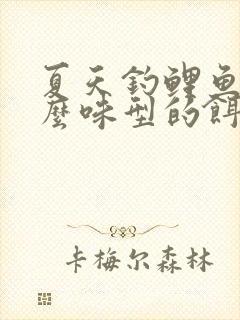 夏天钓鲤鱼
麼味型的餌
卡梅尔森林